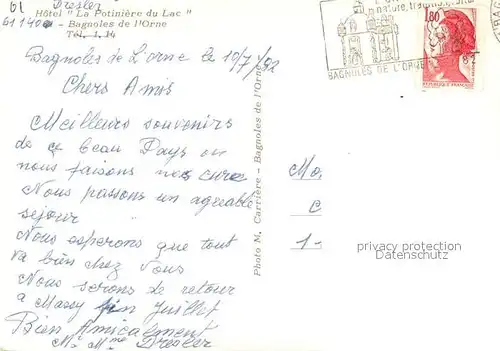 61 Dresler
Hôtel "La Potinière du Lac"
61140 - Bagnoles de l'Orne
Tél. 1.14
nature, tradit
BAGNOLES DE L'ORNE
1,80
REPUBLIQUE FRANCAISE
82
Bagnoles de l'orne le 10/7/82
Chers Amis
Meilleurs souvenirs
de ce beau Pays ou
nous faisons nos cure
Nous passons un agreable
sejour
Nous esperons que tout
va bien chez Vous
Nous serons de retour
a Massy fin Juillet
Bien Amicalement
Mr Mme Dresler
Photo M. Carrière - Bagnoles de l'Orne
Mo.
C
1-
privacy protection
DSGVO